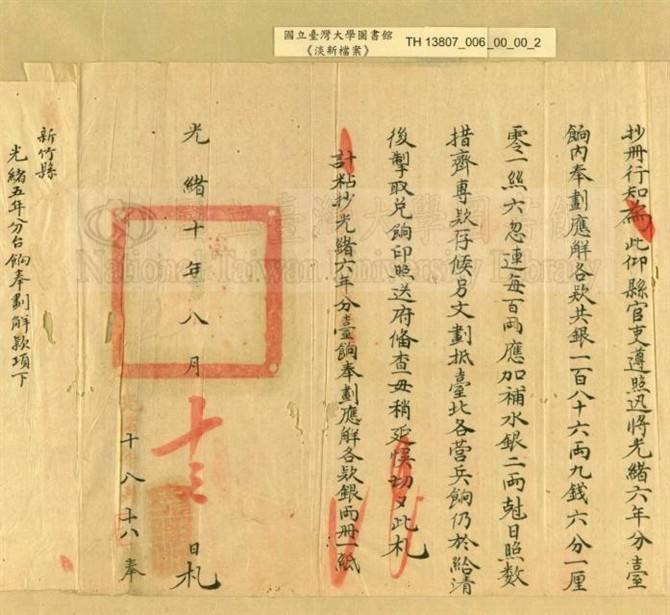 國立臺灣大學圖書館
《淡新檔案》
TH 13807_006_00_00_2
抄冊行知為此仰縣官吏遵照迅將光緒六年分臺
餉內奉劃應解各欵共銀一百八十六兩九錢六分一厘
零一絲六忽連每百兩應加補水銀二兩尅日照數
措齊專欵存候另文劃抵臺北各營兵餉仍於給清
後掣取兌餉印照送府備查毋稍延悞切又此札
計粘抄光緒六年分臺餉奉劃應解各欵銀兩冊一紙
光緒十年八月十三日札
十八 十八 奉
新竹縣
光緒五年分台餉奉劃解欵項下
National Taiwan University Library